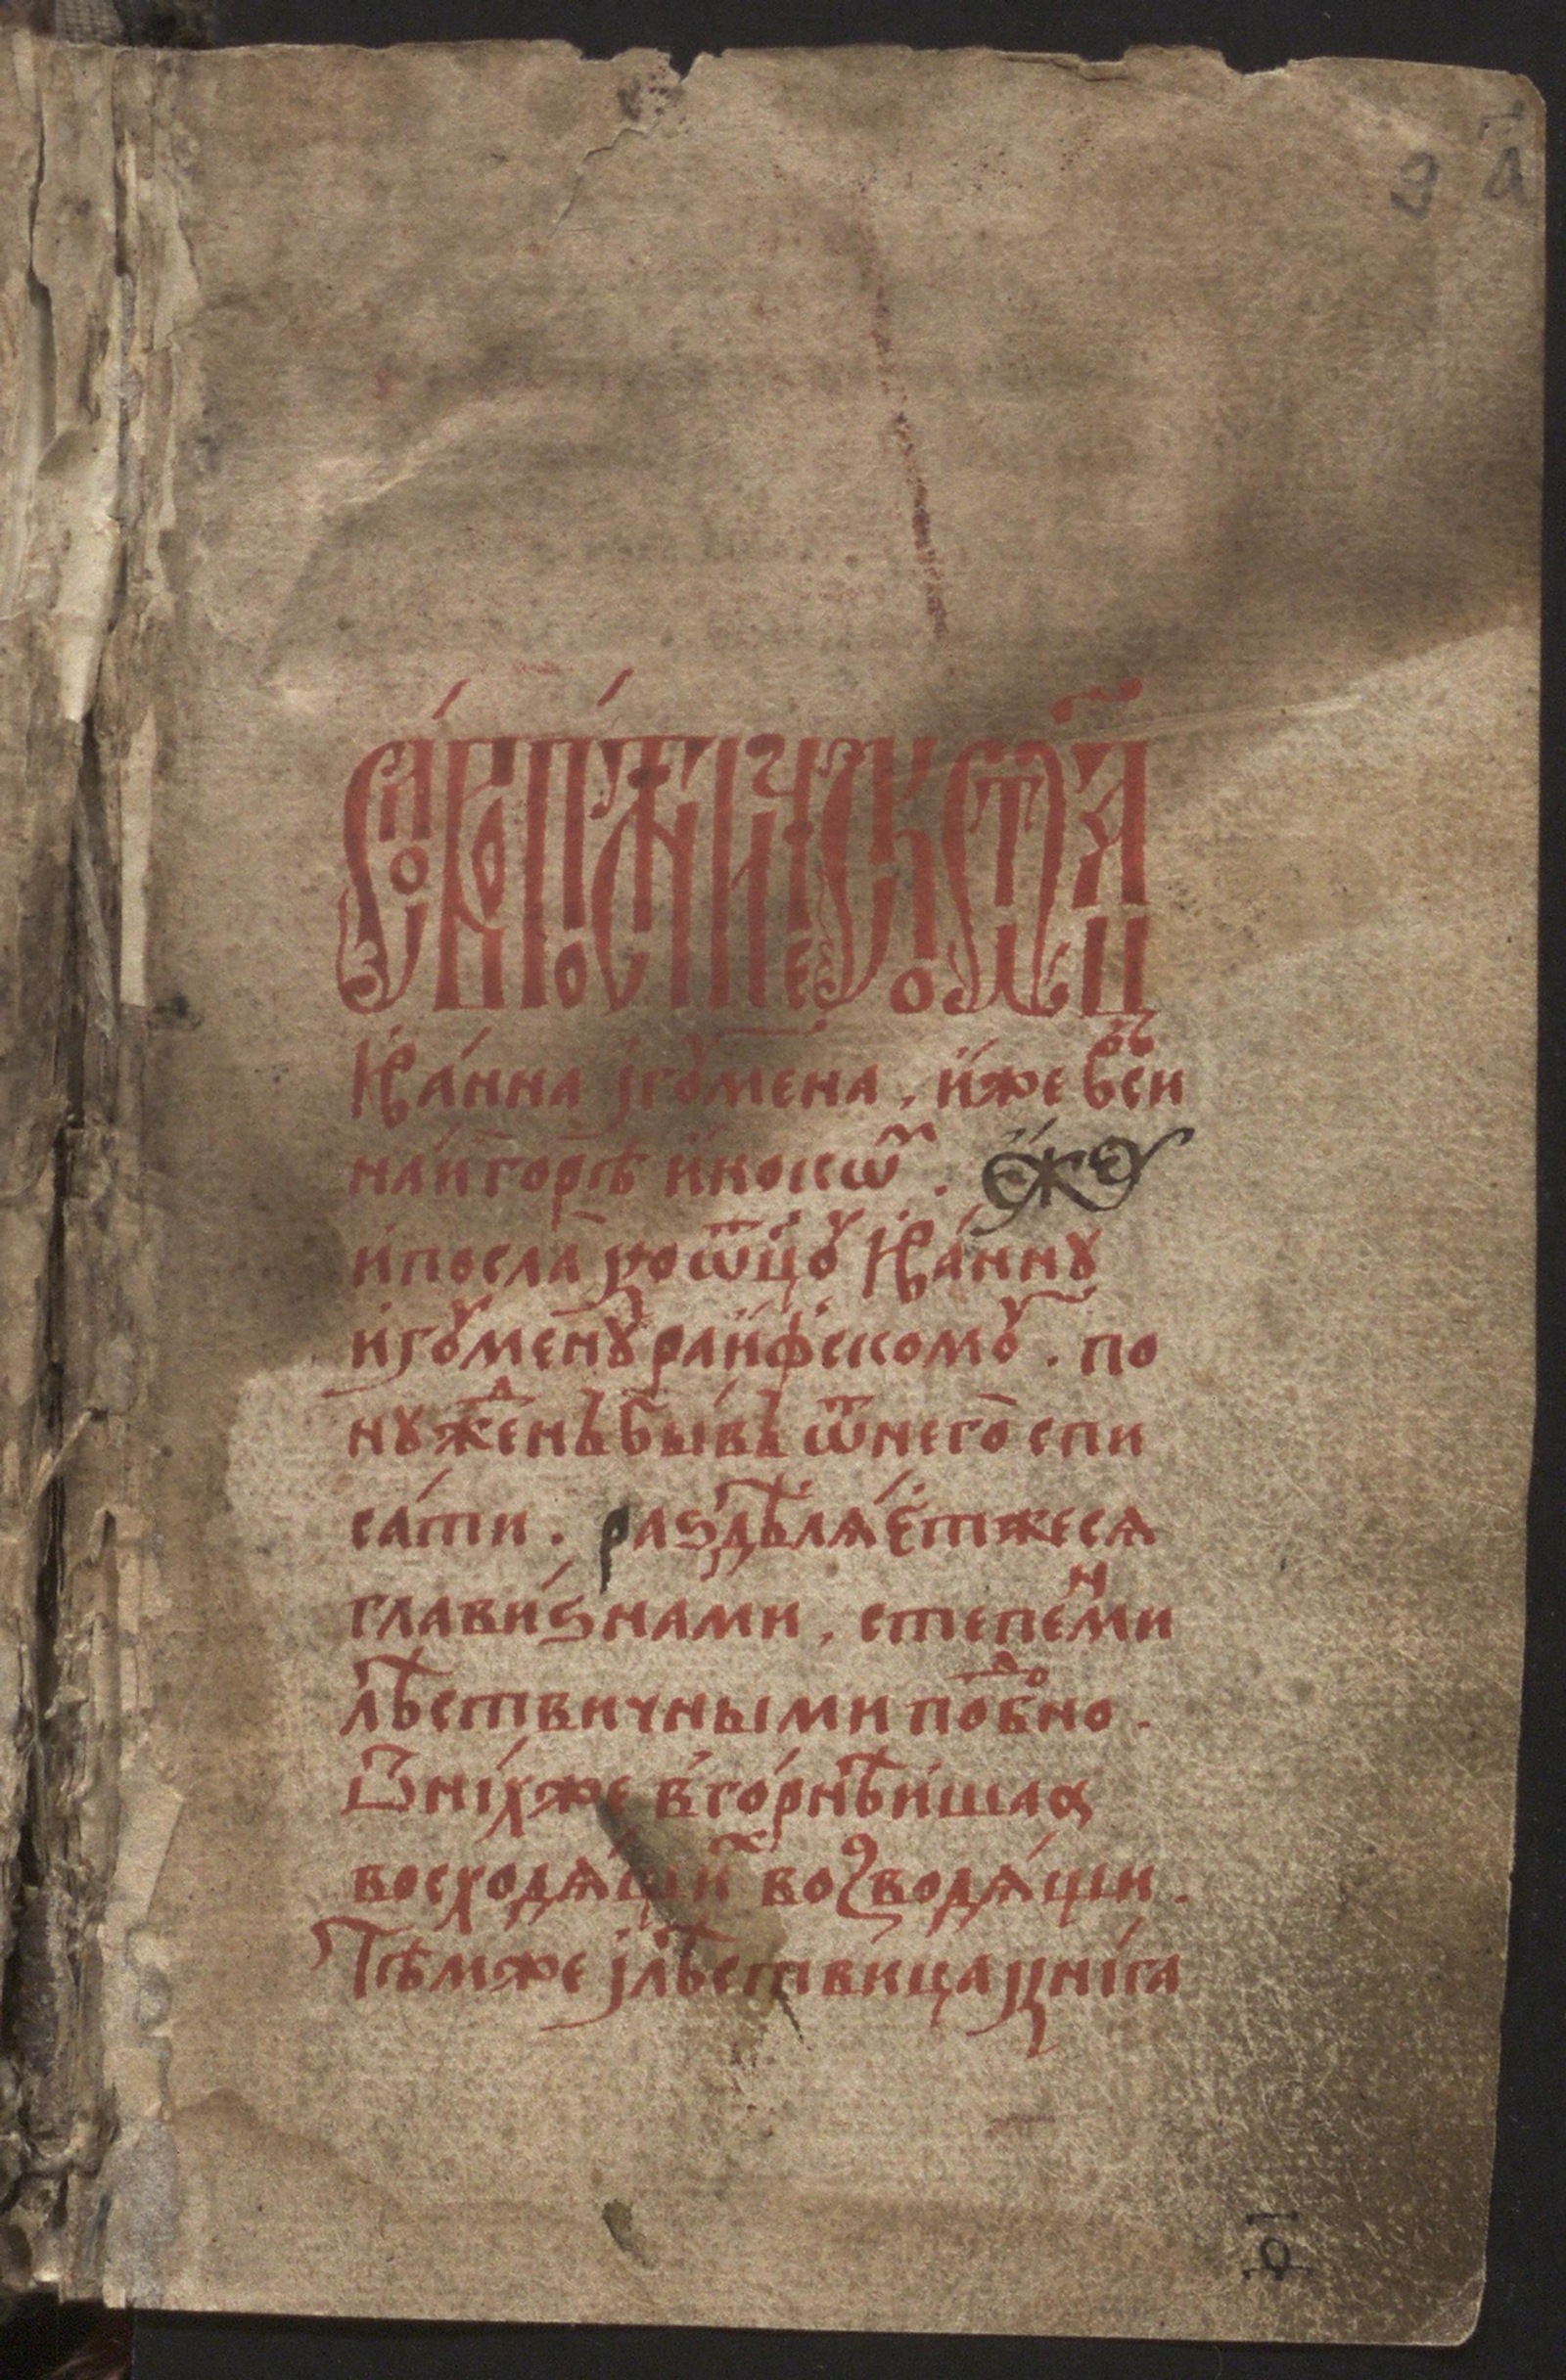 а҃
Сло́во по́стническо ст҃а́го ѻц҃а
Іѡа́нна игꙋ́мена. и҆́же в̾ си
на́и горѣ̀ и҆нокѡмъ. є҆́же
и҆ посла̀ ко ѿцꙋ̀ Іѡа́ннꙋ
и҆гꙋ́менꙋ раи҆́фскомꙋ. по
нꙋжде́нъ бы́въ ѿ него̀ спи
са́ти. раздѣлѧ́етжесѧ
глави́знами. степенми
лѣ́ствичными подобно.
Ѿ ни́хже в̾ го́рнѣишаѧ
восходѧ́щихъ возводѧ́щи.
Тѣ́мже и҆ лѣ́ствица кни́га